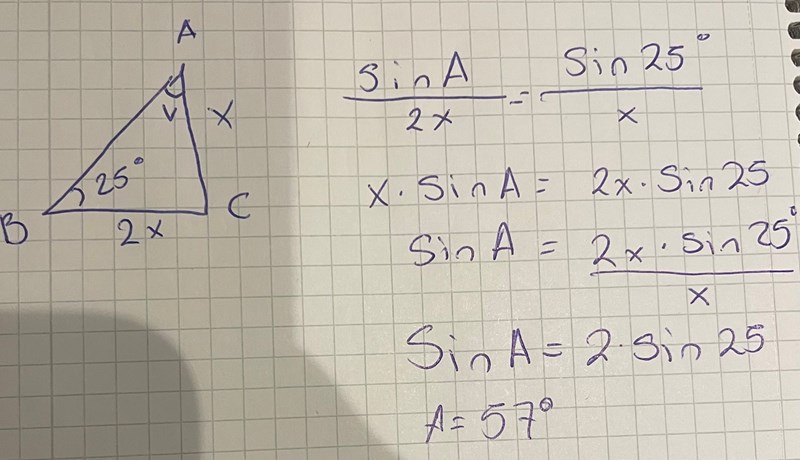 A
V
x
25°
B
2x
C
sin A / 2x = Sin 25° / x
x · Sin A = 2x · Sin 25
Sin A = 2x · Sin 25° / x
Sin A = 2 · Sin 25
A = 57°